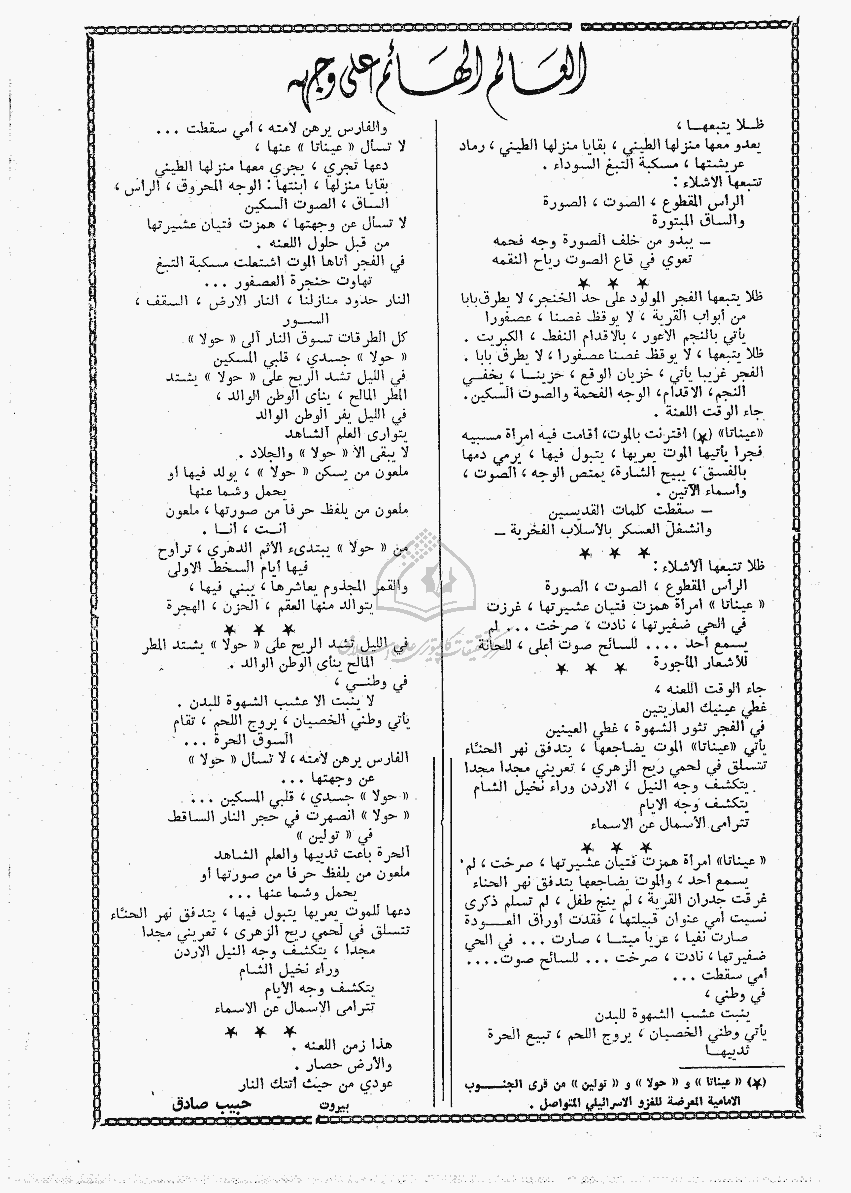 العالم الهائم على وجهه
ظلا يتبعها ،
يعدو معها منزلها الطيني ، بقايا منزلها الطيني ، رماد
عريشتها ، مسكبة التبغ السوداء .
تتبعها الاشلاء :
الرأس المقطوع ، الصوت ، الصورة
والساق المبتورة
ــ يبدو من خلف الصورة وجه فحمه
تعوي في قاع الصوت رياح النقمه
★ ★ ★
ظلا يتبعها الفجر المولود على حد الخنجر، لا يطرق بابا
من أبواب القرية ، لا يوقظ غصنا ، عصفورا
يأتي بالنجم الاعور ، بالاقدام النفط ، الكبريت .
ظلا يتبعها ، لا يوقظ غصنا عصفورا ، لا يطرق بابا .
الفجر غريبا يأتي ، خزيان الوقع ، حزينا ، يخفي
النجم، الاقدام، الوجه الفحمة والصوت السكين.
جاء الوقت اللعنة .
«عيناتا» (★) اقترنت بالموت، أقامت فيه امرأة مسبيه
فجرا يأتيها الموت يعريها ، يتبول فيها ، يرمي دمها
بالفسق ، يبيح الشارة، يمتص الوجه ، الصوت ،
وأسماء الآتين .
ــ سقطت كلمات القديسين
وانشغل العسكر بالأسلاب الفخرية ــ
★ ★ ★
ظلا تتبعها الاشلاء :
الرأس المقطوع ، الصوت ، الصورة
« عيناتا» امرأة همزت فتيان عشيرتها ، غرزت
في الحي ضفيرتها ، نادت ، صرخت ... لم
يسمع أحد .... للسائح صوت أعلى ، للحانة
للأشعار المأجورة
★ ★ ★
جاء الوقت اللعنه ،
غطي عينيك العاريتين
في الفجر تثور الشهوة ، غطي العينين
يأتي «عيناتا» الموت يضاجعها ، يتدفق نهر الحناء
تتسلق في لحمي ريح الزهري ، تعريني مجدا مجدا
يتكشف وجه النيل ، الاردن وراء نخيل الشام
يتكشف وجه الايام
تترامى الأسمال عن الاسماء
★ ★ ★
« عيناتا» امرأة همزت فتيان عشيرتها ، صرخت ، لم
يسمع أحد ، والموت يضاجعها يتدفق نهر الحناء
غرقت جدران القرية ، لم ينج طفل ، لم تسلم ذكرى
نسيت أمي عنوان قبيلتها ، فقدت أوراق العودة
صارت نفيا ، عريا ميتا ، صارت ... في الحي
ضفيرتها ، نادت ، صرخت ... للسائح صوت....
أمي سقطت ...
في وطني ،
ينبت عشب الشهوة للبدن
يأتي وطني الخصيان ، يروج اللحم ، تبيع الحرة
ثدييها
(★) « عيناتا » و « حولا » و « تولين » من قرى الجنوب
الامامية المعرضة للغزو الاسرائيلي المتواصل .
والفارس يرهن لامته ، أمي سقطت ...
لا تسأل « عيناتا » عنها ،
دعها تجري ، يجري معها منزلها الطيني
بقايا منزلها ، ابنتها : الوجه المحروق ، الرأس ،
الساق ، الصوت السكين
لا تسأل عن وجهتها ، همزت فتيان عشيرتها
من قبل حلول اللعنه .
في الفجر أتاها الموت اشتعلت مسكبة التبغ
تهاوت حنجرة العصفور ...
النار حدود منازلنا ، النار الارض ، السقف ،
السور
كل الطرقات تسوق النار الى « حولا »
« حولا » جسدي ، قلبي المسكين
في الليل تشد الريح على « حولا » يشتد
المطر المالح ، ينأى الوطن الوالد ،
في الليل يفر الوطن الوالد
يتوارى العلم الشاهد
لا يبقى الا « حولا » والجلاد .
ملعون من يسكن « حولا » ، يولد فيها أو
يحمل وشما عنها
ملعون من يلفظ حرفا من صورتها ، ملعون
انت ، انا .
من « حولا » يبتدىء الاثم الدهري ، تراوح
فيها أيام السخط الاولى
والقمر المجذوم يعاشرها ، يبني فيها ،
يتوالد منها العقم ، الحزن ، الهجرة
★ ★ ★
في الليل تشد الريح على « حولا » يشتد المطر
المالح ينأى الوطن الوالد .
في وطني ،
لا ينبت الا عشب الشهوة للبدن .
يأتي وطني الخصيان ، يروج اللحم ، تقام
السوق الحرة ...
الفارس يرهن لامته ، لا تسأل « حولا »
عن وجهتها ...
« حولا » جسدي ، قلبي المسكين ...
« حولا » انصهرت في حجر النار الساقط
في « تولين »
الحرة باعت ثدييها والعلم الشاهد
ملعون من يلفظ حرفا من صورتها أو
يحمل وشما عنها ...
دعها للموت يعريها يتبول فيها ، يتدفق نهر الحناء
تتسلق في لحمي ريح الزهري ، تعريني مجدا
مجدا ، يتكشف وجه النيل الاردن
وراء نخيل الشام
يتكشف وجه الايام
تترامى الاسمال عن الاسماء
★ ★ ★
هذا زمن اللعنه .
والأرض حصار .
عودي من حيث أتتك النار
بيروت حبيب صادق